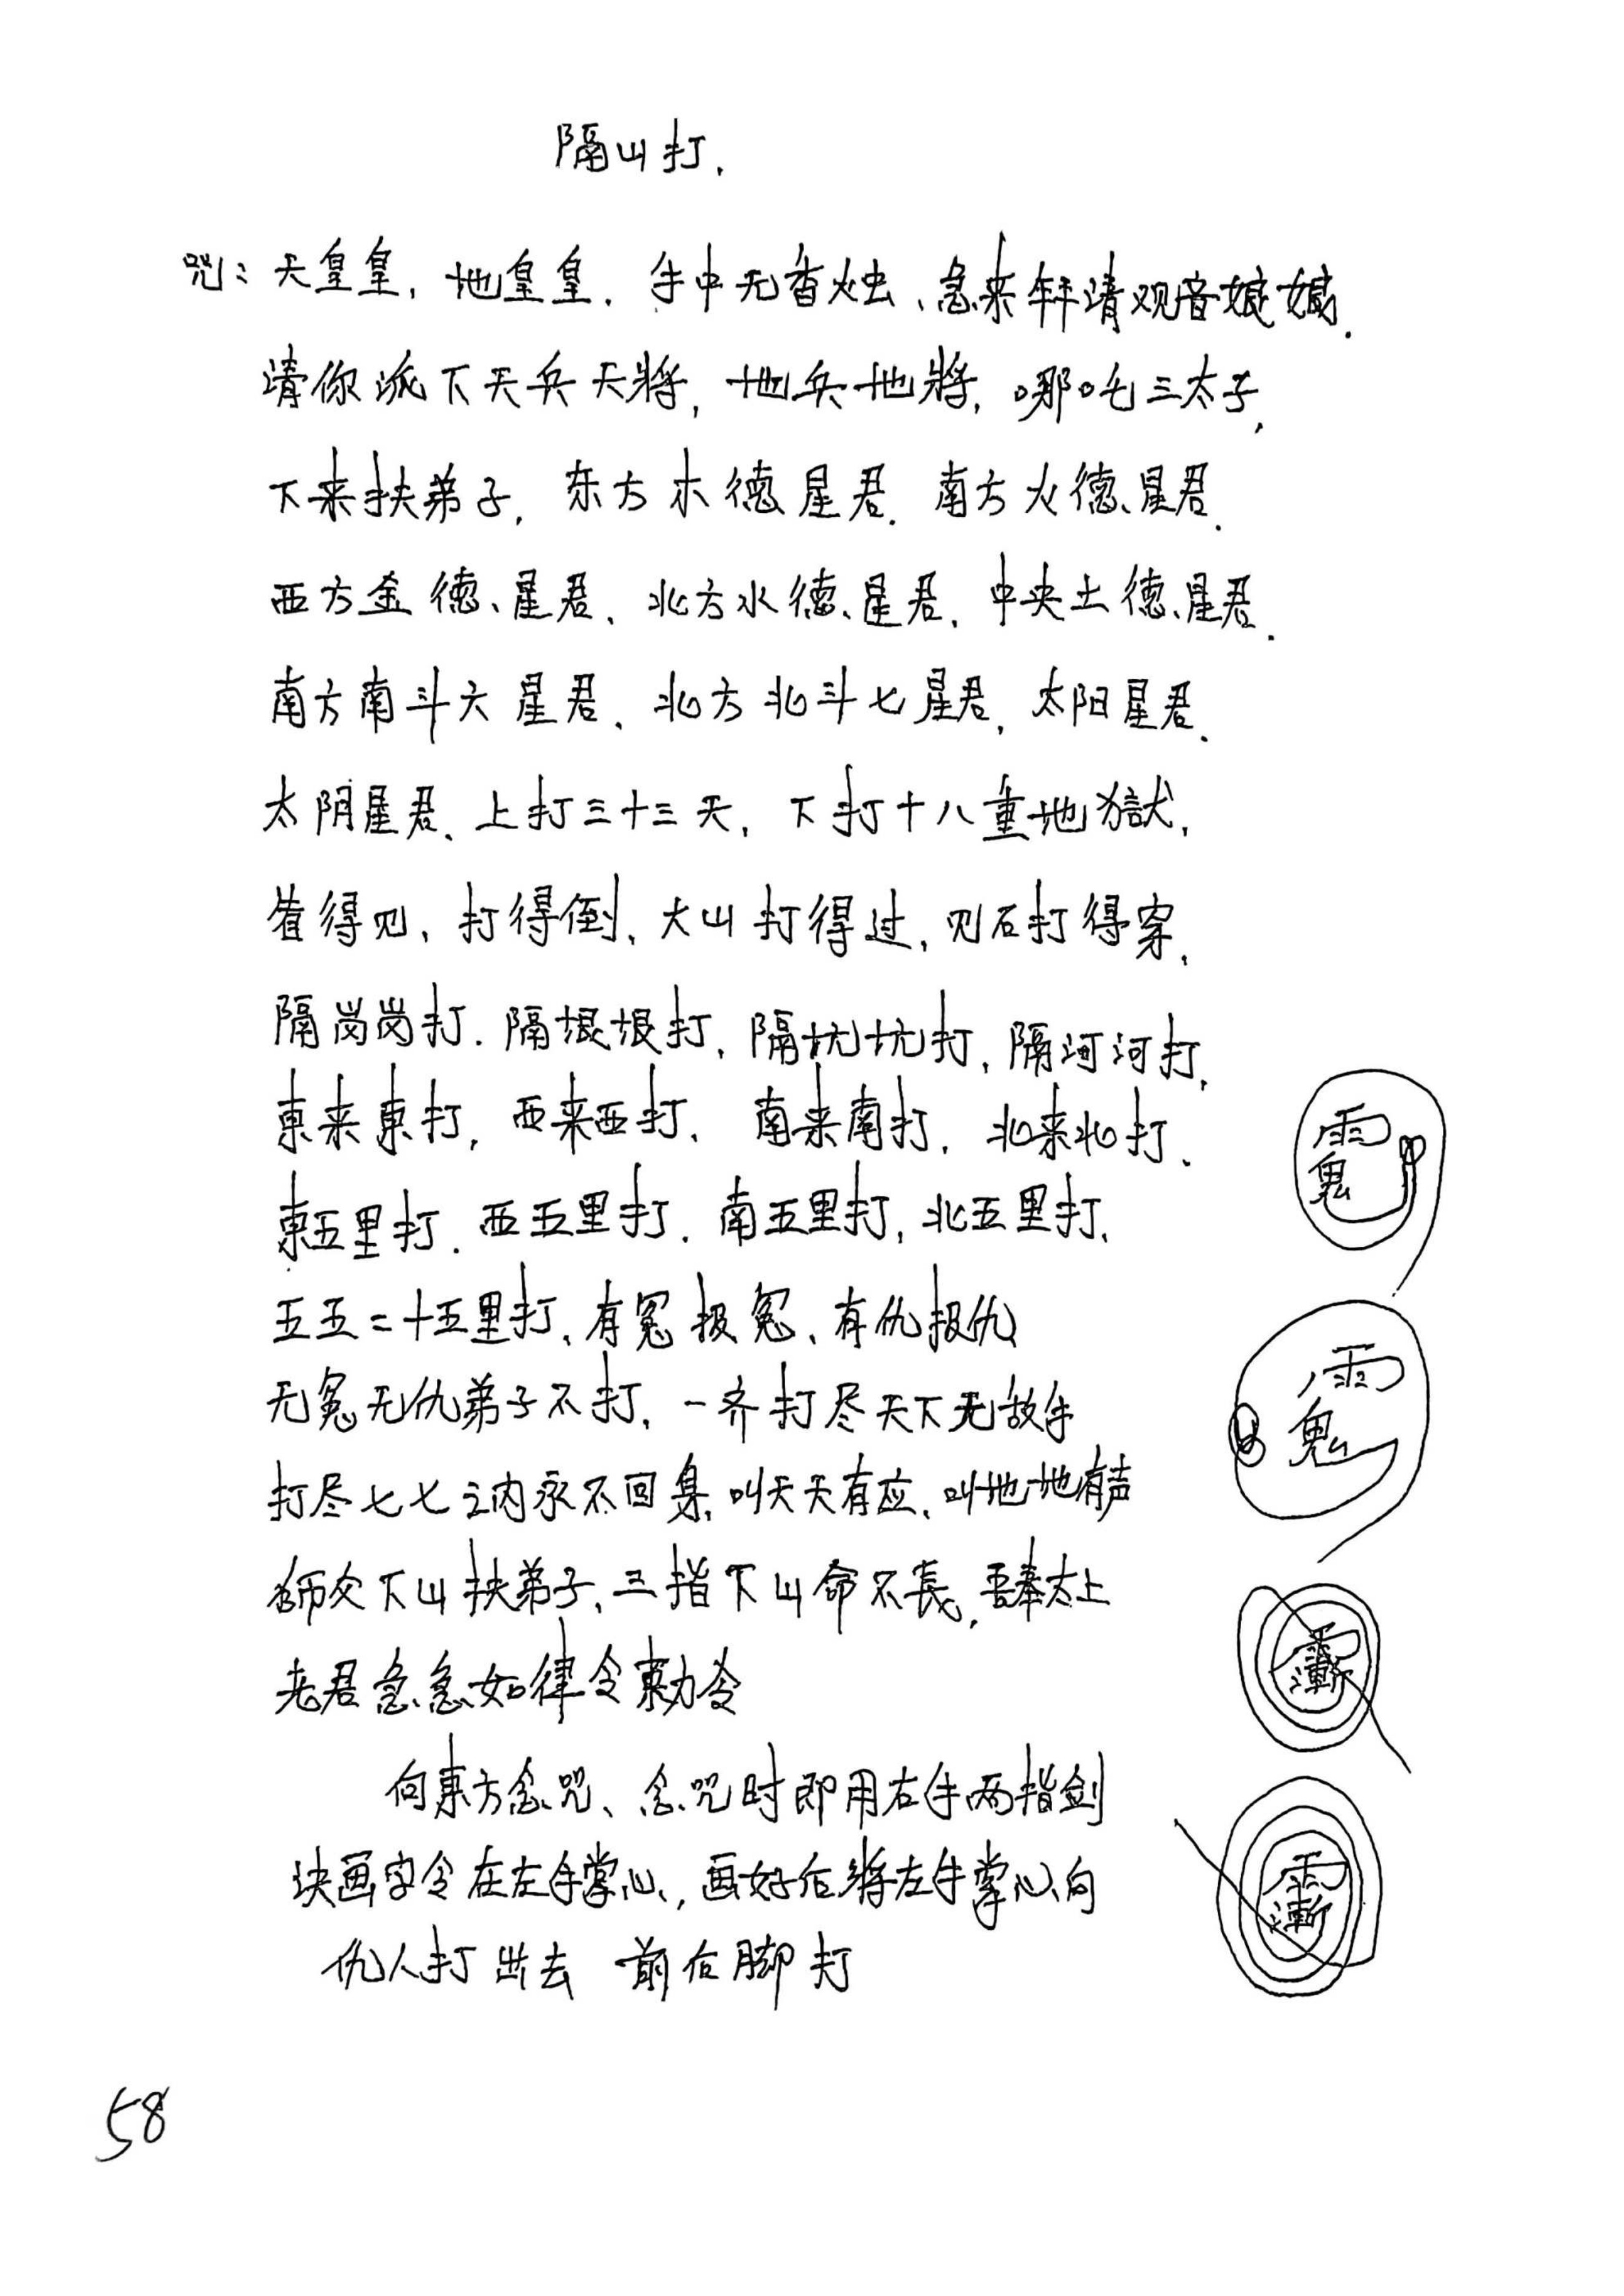 隔山打.
咒：天皇皇，地皇皇.手中无香烛、急来拜请观音娘娘.
请你派下天兵天將，地兵地將，哪吒三太子，
下来扶弟子，东方木德星君.南方火德星君.
西方金德星君、北方水德星君.中央土德星君.
南方南斗六星君、北方北斗七星君，太阳星君、
太阴星君、上打三十三天，下打十八重地獄，
看得见，打得倒，大山打得过，见石打得穿，
隔岗岗打.隔垠垠打，隔坑坑打，隔河河打，
東来東打，西来西打、南来南打.北来北打.
東五里打.西五里打.南五里打，北五里打，
五五二十五里打、有冤报冤、有仇报仇
无冤无仇弟子不打，一齐打尽天下无敌手
打尽七七之内永不回身，叫天天有应，叫地地有声
师父下山扶弟子，三指下山命不長，吾奉太上
老君急急如律令敕令
向東方念咒、念咒时即用右手两指剑
决画字令在左手掌心，画好后将左手掌心向
仇人打出去 前右脚打
58